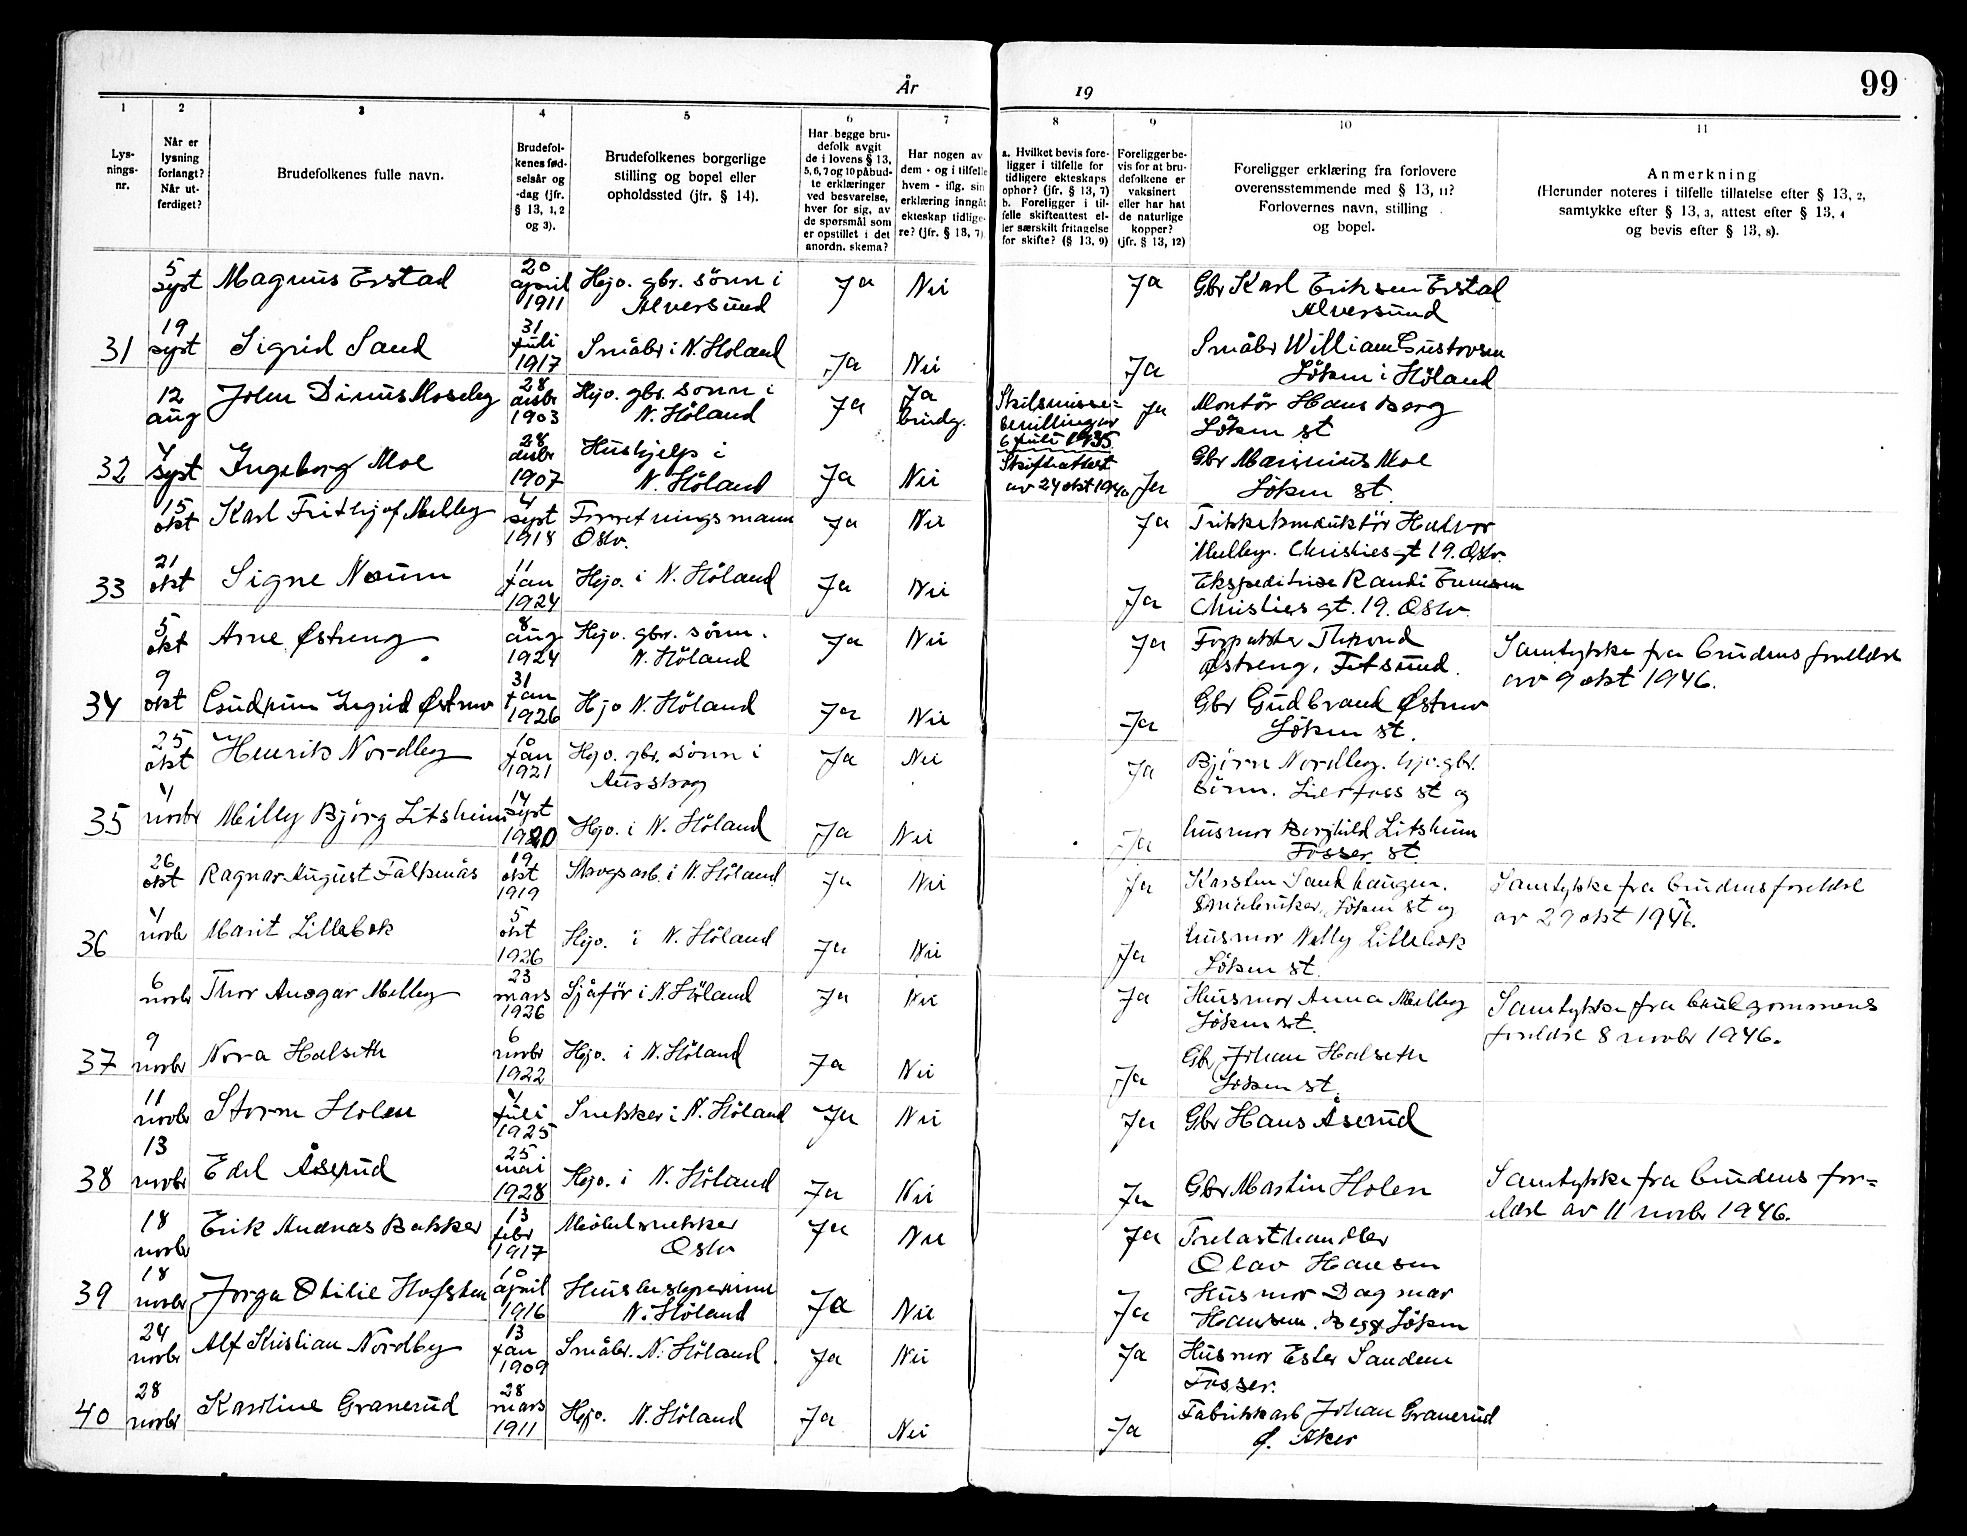 År
19
99
1
2
3
4
5
6
7
8
9
10
11
Lys-
nings-
nr.
Når er
lysning
forlangt?
Når ut-
ferdiget?
Brudefolkenes fulle navn.
Brudefol-
kenes fød-
selsår og
-dag (jfr.
§ 13, 1, 2
og 3).
Brudefolkenes borgerlige
stilling og bopel eller
opholdssted (jfr. § 14).
Har begge bru-
defolk avgit
de i lovens § 13,
5, 6, 7 og 10 påbud-
te erklæringer
ved besvarelse,
hver for sig, av
de spørsmål som
er opstillet i det
anordn. skema?
Har nogen av
dem - og i tilfelle
hvem - iflg. sin
erklæring inngåt
ekteskap tidlige-
re? (jfr. § 13, 7)
a. Hvilket bevis fore-
ligger i tilfelle for
tidligere ekteskaps
ophør? (jfr. § 13, 7)
b. Foreligger i til-
felle skifteattest el-
ler særskilt fritagelse
for skifte? (§ 13, 9)
Foreligger be-
vis for at bru-
defolkene er
vaksinert
eller har hat
de naturlige
kopper?
(jfr. § 13, 12)
Foreligger erklæring fra forlovere
overensstemmende med § 13, 11?
Forlovernes navn, stilling
og bopel.
Anmerkning
(Herunder noteres i tilfelle tillatelse efter § 13, 2,
samtykke efter § 13, 3, attest efter § 13, 4
og bevis efter § 13, 8).
5 sept Magnus Erstad 20 april 1911 Hjv. gbr. sönn i Alversund Ja Nei Ja Gbr Karl Eriksen Erstad Alversund
31 19 sept Sigrid Sand 31 juli 1917 Småbr i N. Höland Ja Nei Ja Småbr William Gustavsen Löken i Höland
12 aug John Dinus Moseby 28 desbr 1903 Hjv. gbr. sönn i N. Höland Ja Ja brudg. Skilsmisse= bevilling av 6 juli 1935 Ja Montör Hans Berg Löken st
32 4 sept Ingeborg Moe 28 desbr 1907 Hushjelp i N. Höland Ja Nei Skifteattest av 24 okt 1940 Ja Gbr Marinius Moe Löken st.
15 okt Karl Frithjof Melleby 4 sept 1918 Forretningsmann Oslo. Ja Nei Ja Trikkekonduktör Halvor Melleby. Christies gt 19. Oslo
33 21 okt Signe Naum 11 jan 1924 Hjv. i N. Höland Ja Nei Ja Ekspeditrise Randi Evensen Christies gt. 19. Oslo
5 okt Arne Østreng 8 aug 1924 Hjv. gbr. sönn. N. Höland Ja Nei Ja Østreng, Fetsund. Samtykke fra brudens foreldre av 9 okt 1946.
34 9 okt Gudrun Ingrid Østmo 31 jan 1926 Hjv N. Höland Ja Nei Ja Gbr Gudbrand Østmo Löken st.
25 okt Henrik Nordby 10 jan 1921 Hjv. gbr. sönn i Aurskog Ja Nei Ja Björn Nordby. hjv. gbr. sönn. Lierfoss st og
35 4 novbr Milly Björg Litsheim 14 sept 1920 Hjv. i N. Höland Ja Nei Ja husmor Borghild Litsheim Fosser st
26 okt Ragnar August Falknäs 19 okt 1919 Skogsarb. i N. Höland Ja Nei Ja Karsten Sandhaugen. Småbruker, Löken st og Samtykke fra brudens foreldre av 29 okt 1946.
36 4 novbr Marit Lillebek 5 okt 1926 Hjv. i N. Höland Ja Nei Ja husmor Nelly Lillebek Löken st.
6 novbr Thor Ansgar Melleby 23 mars 1926 Sjåför i N. Höland Ja Nei Ja Husmor Anna Melleby Löken st. Samtykke fra brudgommens foreldre 8 novbr 1946.
37 9 novbr Nora Halseth 6 novbr 1922 Hjv. i N. Höland Ja Nei Ja Gbr Johan Halseth Löken st.
11 novbr Storm Holen 4 juli 1925 Snekker i N. Höland Ja Nei Ja Gbr Hans Åserud
38 13 novbr Edel Åserud 25 mai 1928 Hjv. i N. Höland Ja Nei Ja Gbr Martin Holen Samtykke fra brudens for= eldre av 11 novbr 1946.
18 novbr Erik Andreas Bakker 13 febr 1917 Möbelsnekker Oslo Ja Nei Ja Trelasthandler Olav Hansen
39 18 novbr Jorga Otilie Hofsten 10 april 1916 Husbestyrerinne N. Höland Ja Nei Ja Husmor Dagmar Hansen. Begge Löken
24 novbr Alf Kristian Nordby 13 jan 1909 Småbr. N. Höland Ja Nei Ja Husmor Ester Sandem Fosser.
40 28 novbr Karoline Granerud 28 mars 1911 Hjv. N. Höland Ja Nei Ja Fabrikkarb Johan Granerud Ø. Aker